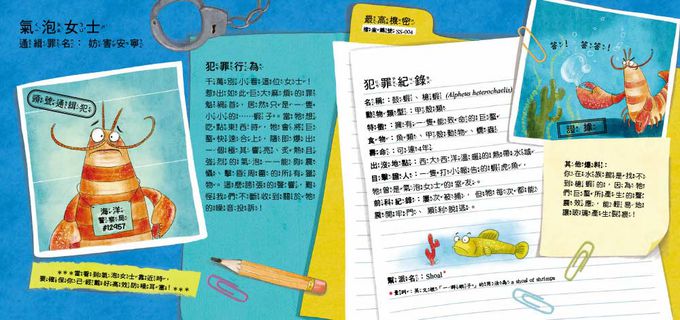 氣泡女士
通緝罪名：妨害安寧
頭號通緝犯
海洋
警察局
#12957
***當看到氣泡女士靠近時，
要確保你已經戴好高效防噪耳塞！***
犯罪行為
千萬別小看這位女士！
惹出如此巨大麻煩的罪
魁禍首，居然只是一隻
小小的……蝦子。當牠想
吃點東西時，牠會將巨
螯快速合上，隨即爆出
一個極其響亮、炙熱且
強烈的氣泡——能夠震
懾、擊昏周圍的所有獵
物。這麼誇張的聲響，難
怪我們不斷收到關於牠
的噪音投訴！
最高機密
檔案編號：SS-004
犯罪紀錄
名稱：鼓蝦、槍蝦（Alpheus heterochaelis）
動物類型：甲殼類
特徵：擁有一隻能致命的巨螯
食物：魚類、甲殼動物、蠕蟲
壽命：可達4年
出沒地點：西大西洋溫暖的熱帶水域
目擊證人：一隻打小報告的蝦虎魚，
牠曾是氣泡女士的室友。
前科紀錄：屢次被捕，但牠每次都能
震開牢門、順利脫逃。
幫派名：Shoal*
a shoal of shrimps
答！ 答答！
證據
其他爆料：
你在水族館是找不
到槍蝦的，因為牠
們巨螯所產生的聲
震效應，能輕易地
讓玻璃產生裂痕！